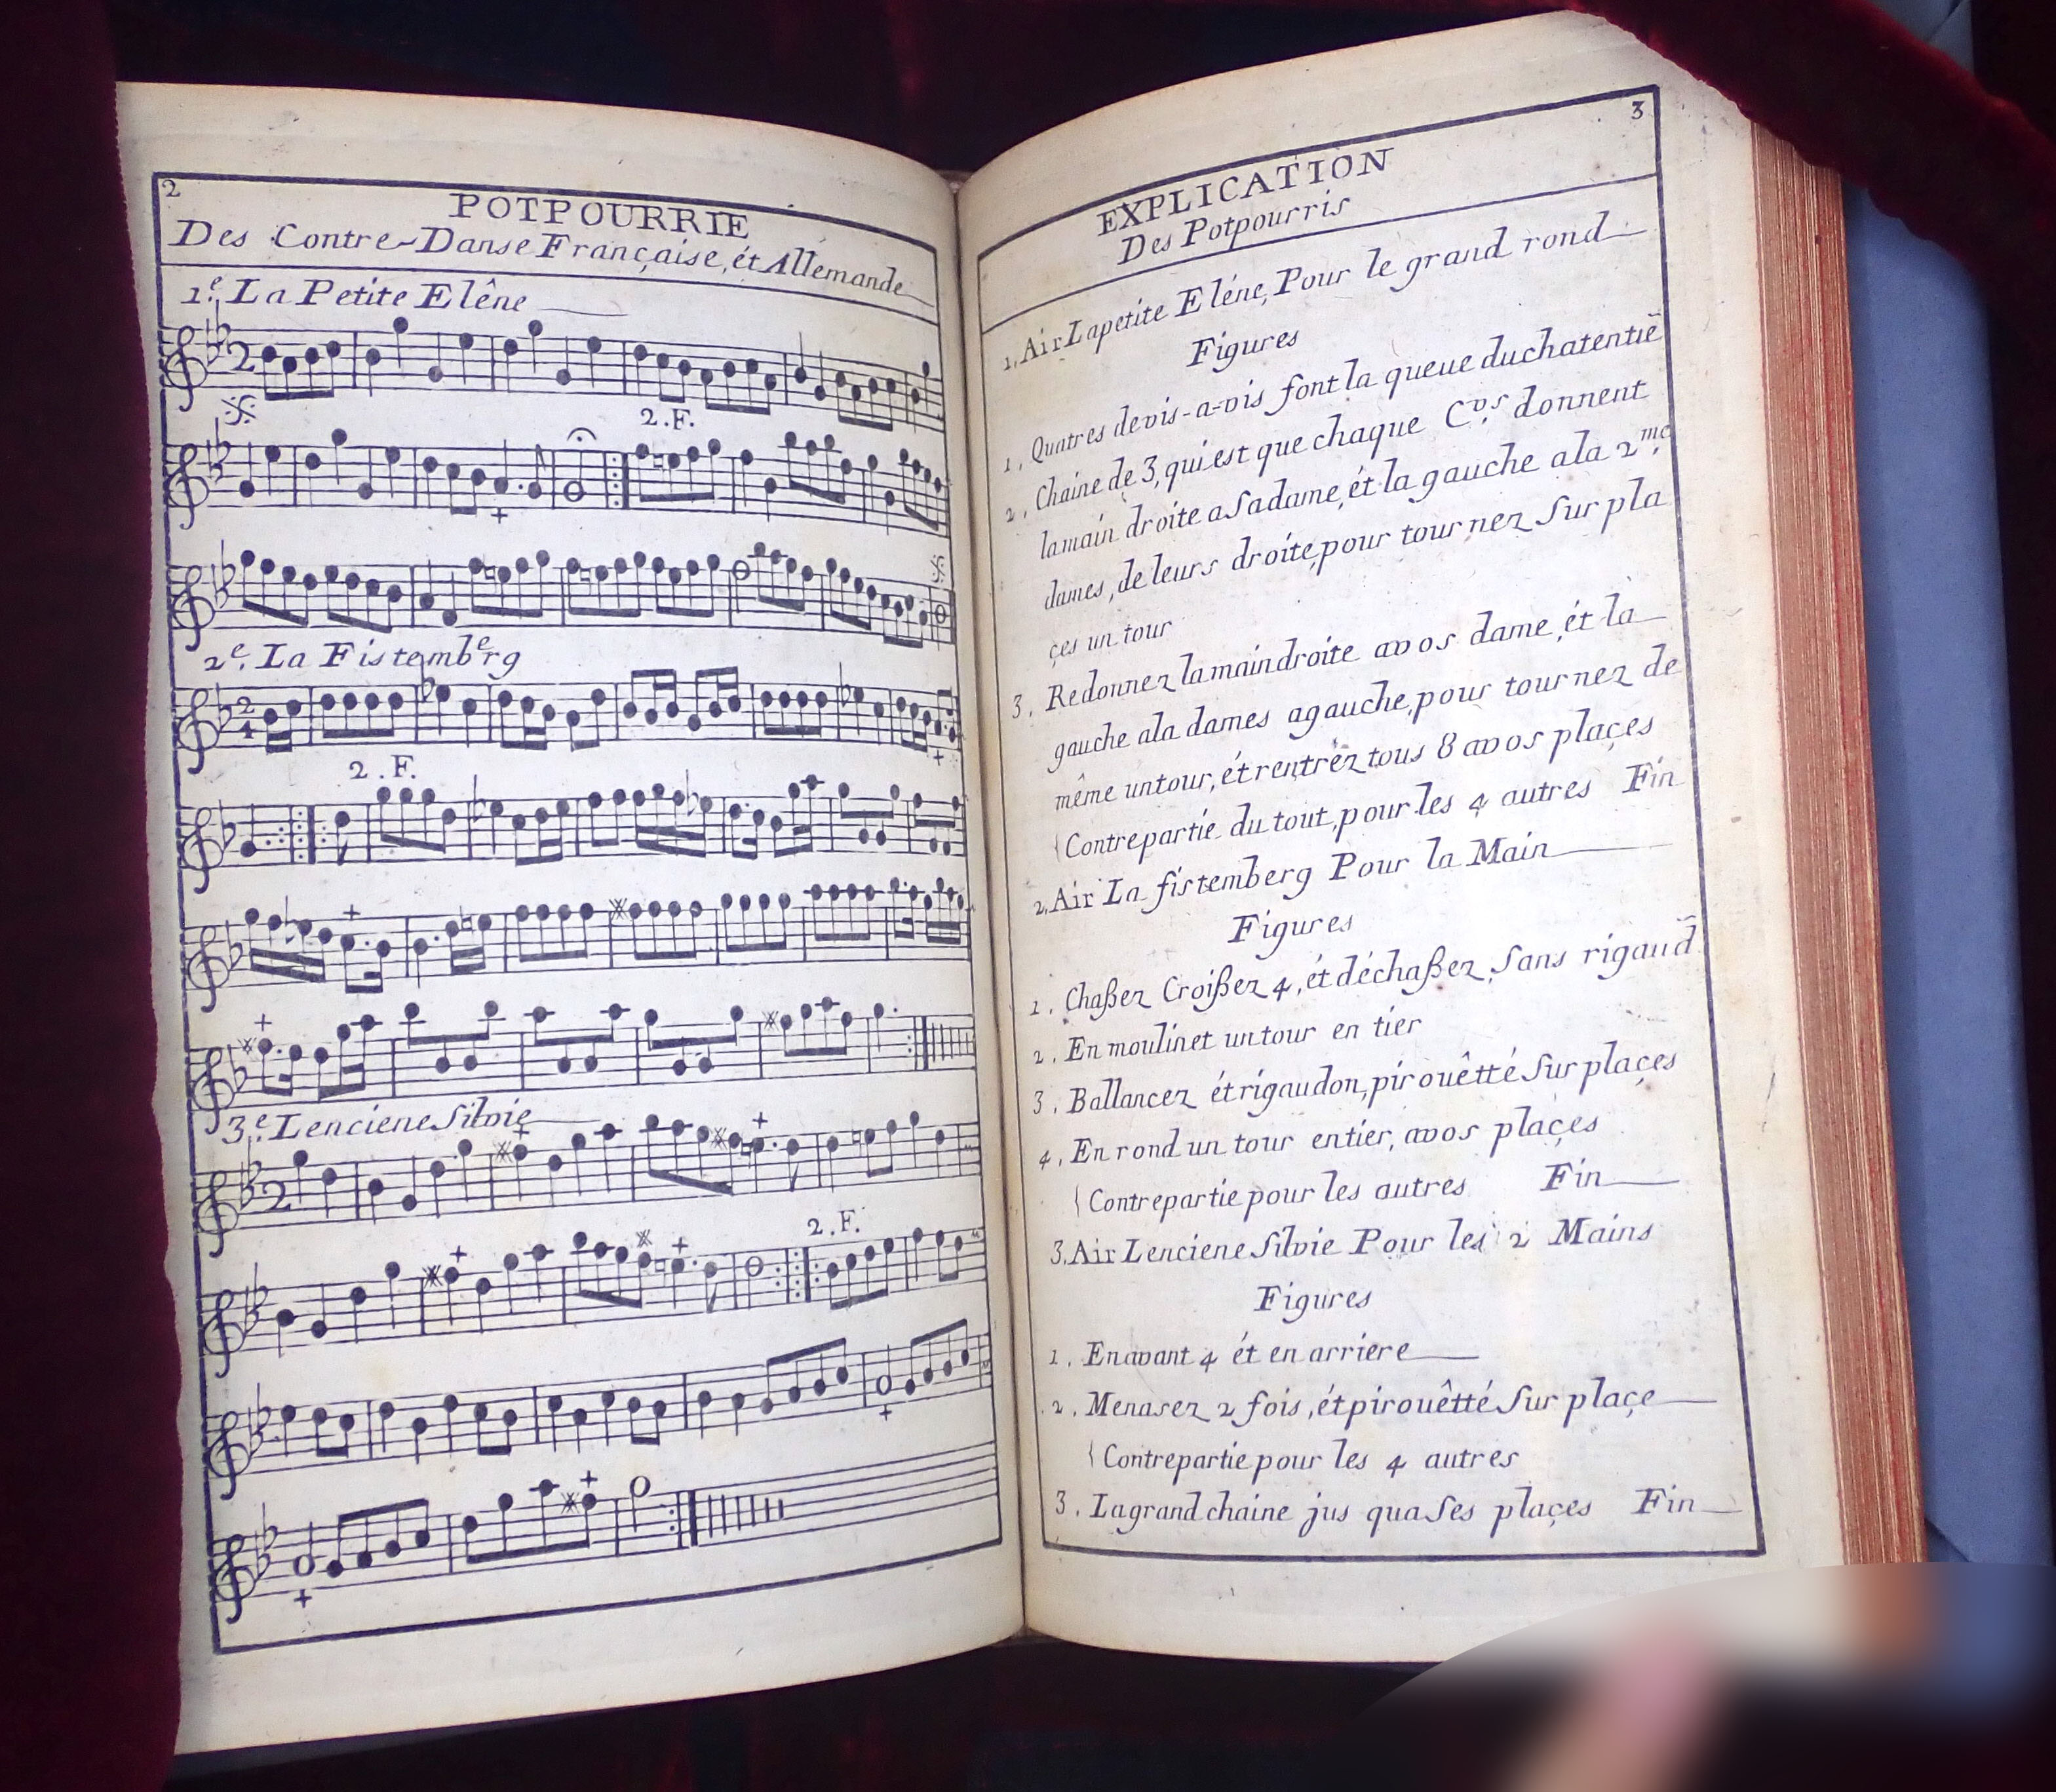 2
POTPOURRIE
Des Contre-Danse Française, ét Allemande
1.e La Petite Elêne
2
2.F.
2.e La Fistemberg
2
4
2.F.
3.e Lenciene Silvie
2
2.F.
3
EXPLICATION
Des Potpourris
1. Air Lapetite Eléne, Pour le grand rond
Figures
1. Quatres devis-a-vis font la queue duchatentiē
2. Chaine de 3, qui est que chaque C.vs donnent
lamain droite a sadame, ét la gauche ala 2.me
dames, de leurs droite, pour tournez sur pla
çes un tour
3. Redonnez lamaindroite avos dame, ét la
gauche ala dames agauche, pour tournez de
même untour, ét rentréz tous 8 avos plaçes
Contrepartie du tout, pour les 4 autres Fin
2. Air La fistemberg Pour la Main
Figures
1. Chaßez Croißez 4, ét déchaßez, sans rigaud̄
2. En moulinet untour en tier
3. Ballancez ét rigaudon, pirouêtté sur plaçes
4. En rond un tour entier, avos plaçes
Contrepartie pour les autres Fin
3. Air Lenciene silvie Pour les 2 Mains
Figures
1. Enavant 4 ét en arriere
2. Menasez 2 fois, ét pirouêtté sur plaçe
Contrepartie pour les 4 autres
3. Lagrand chaine jus qua ses plaçes Fin